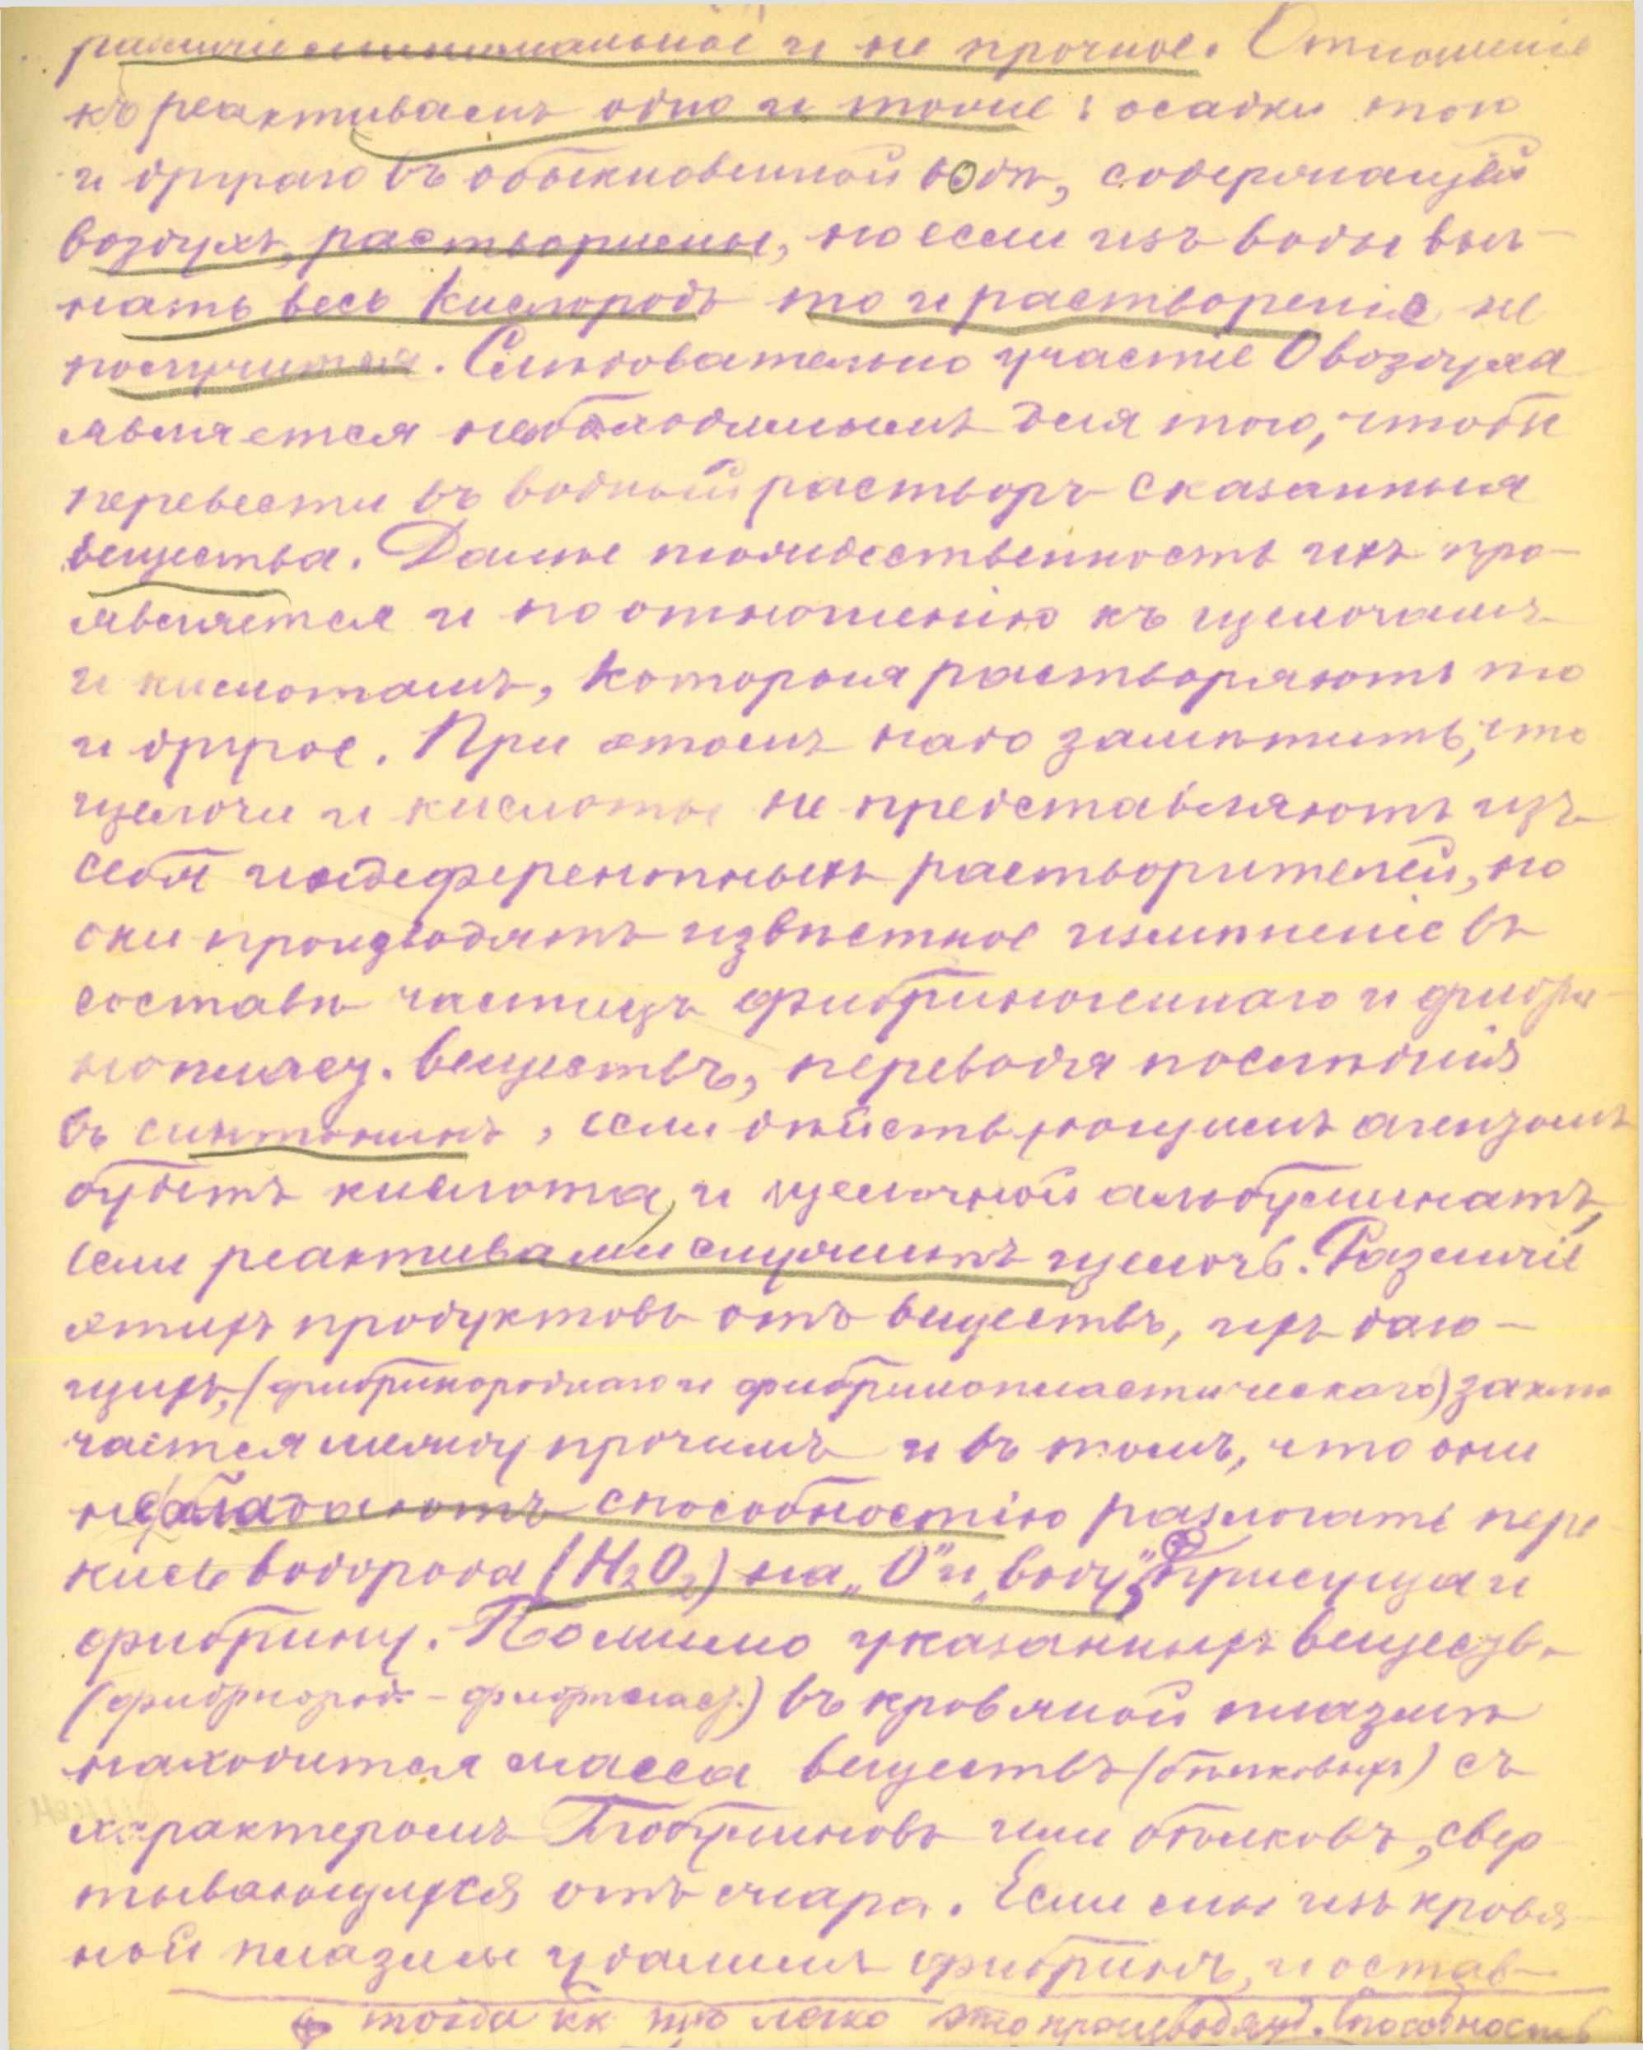 различіе минимальное и не прочное. Отношеніе
къ реактивамъ одно и тоже: осадки того
и другаго въ обыкновенной водѣ, содержащей
воздухъ, растворимы, но если изъ воды выг-
нать весь кислородъ то и растворенія не
получится. Слѣдовательно участіе О воздуха
является необходимымъ для того, чтобы
перевести въ водный растворъ сказанныя
вещества. Далѣе тождественность ихъ про-
является и по отношенію къ щелочамъ
и кислотамъ, которыя растворяютъ то
и другое. При этомъ надо замѣтить, что
щелочи и кислоты не представляютъ изъ
себя индеферентныхъ растворителей, но
они производятъ извѣстное измѣненіе въ
составѣ частицъ фибриногеннаго и фибри-
нопласт. веществъ, переводя послѣднія
въ синтонинъ, если дѣйствующимъ агентомъ
будетъ кислота, и щелочной альбуминатъ,
если реактивами служитъ щелочь. Различіе
этихъ продуктовъ отъ веществъ, ихъ даю-
щихъ, (фибринороднаго и фибринопластическаго) заклю
чается между прочимъ и въ томъ, что они
не обладаютъ способностію разлагать пере
кись водорода (H2O2) на „О" и „воду", присущая и
фибрину. Помимо указанныхъ веществъ
(фибрнород - фибрпласт.) въ кровяной плазмѣ
находится масса веществъ (бѣлковыхъ) съ
характеромъ Глобулиновъ или бѣлковъ, свер
тывающихся отъ жара. Если мы изъ кровя-
ной плазмы удалимъ фибринъ, и остав-
тогда кк пр легко это производятъ. Способность